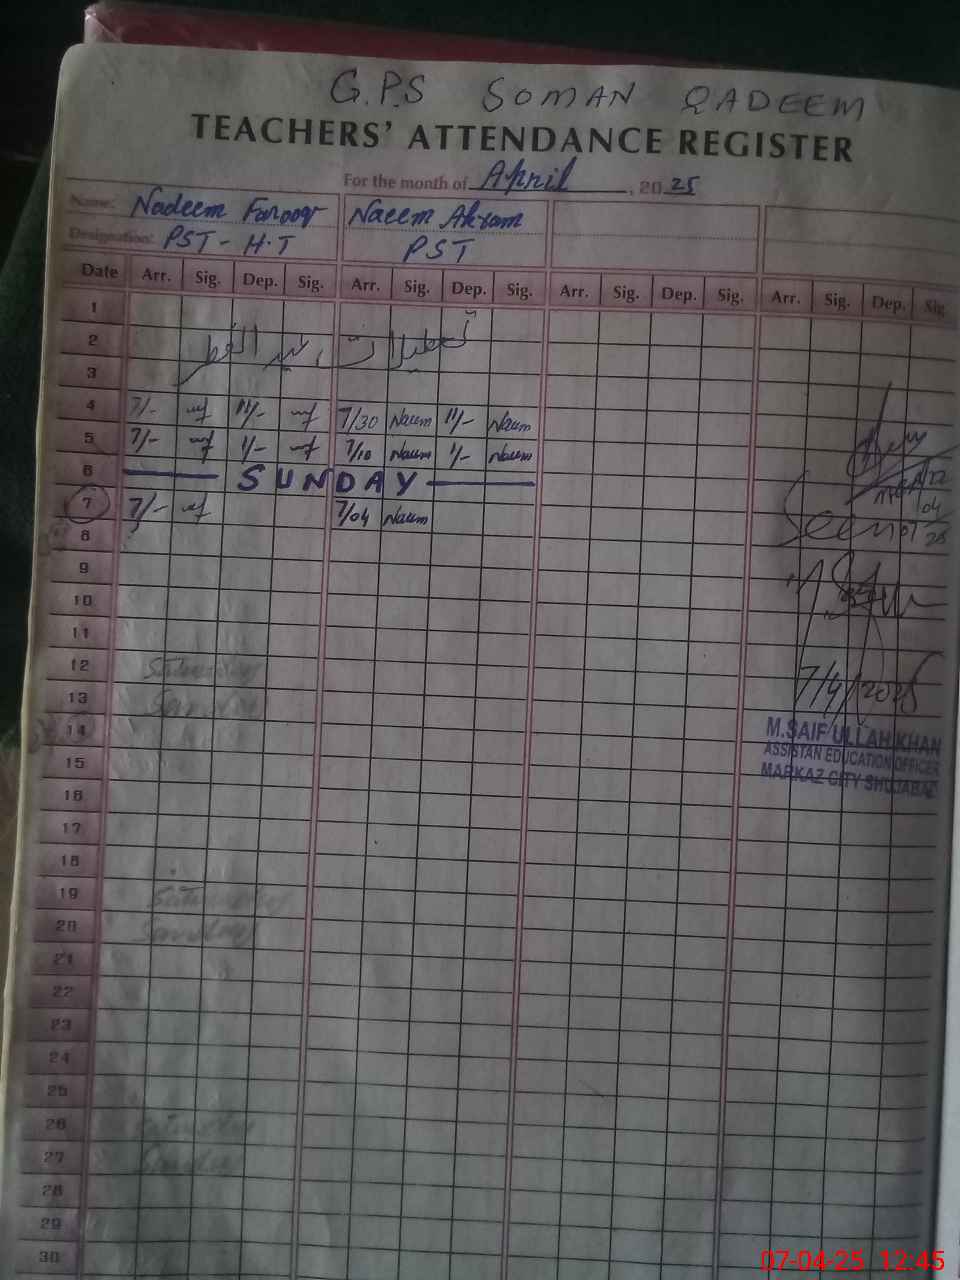 G.P.S SOMAN QADEEM
TEACHERS' ATTENDANCE REGISTER
For the month of April, 2025
Name: Nadeem Farooq Naeem Akram
Designation: PST - H.T PST
Date Arr. Sig. Dep. Sig. Arr. Sig. Dep. Sig. Arr. Sig. Dep. Sig. Arr. Sig. Dep. Sig.
1
2 تعطیلات عید الفطر
3
4 7/- 11/- 7/30 Naeem 11/- Naeem
5 7/- 1/- 7/10 Naeem 1/- Naeem
6 SUNDAY
7 7/- 7/04 Naeem
Seen
04
25
8
9
10
11
12 Saturday
13 Sunday
7/4/2025
14
M.SAIF ULLAH KHAN
ASSISTAN EDUCATION OFFICER
MARKAZ CITY SHUJABAD
15
16
17
18
19 Saturday
20 Sunday
21
22
23
24
25
26 Saturday
27 Sunday
28
29
30
07-04-25 12:45